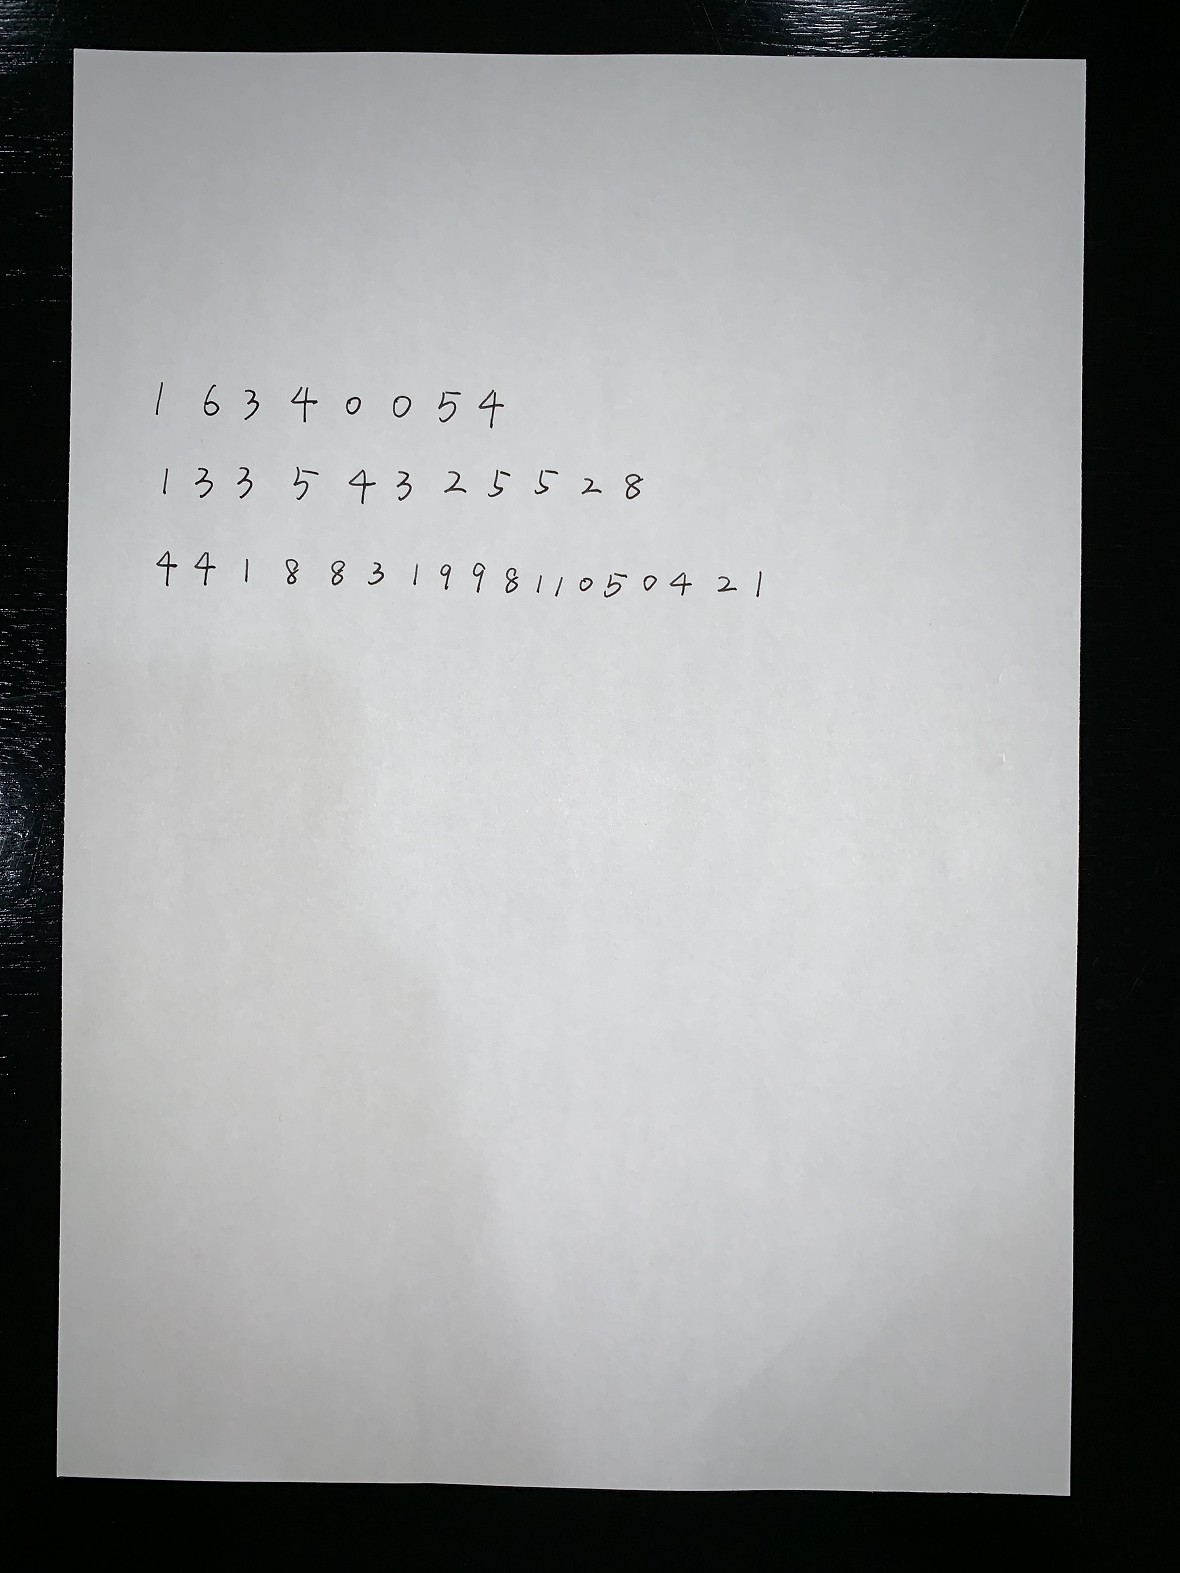 1 6 3 4 0 0 5 4
1 3 3 5 4 3 2 5 5 2 8
4 4 1 8 8 3 1 9 9 8 1 1 0 5 0 4 2 1